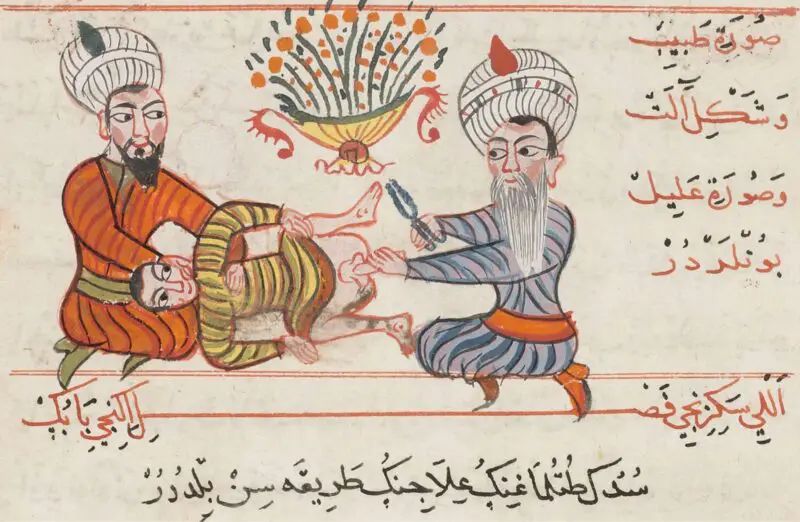 صُورَةِ طَبِيبْ
وَشَكْلِ آلَتْ
وَصُورَةِ عَلِيلْ
بُونْلَرْدُرْ
اَللِّي سَكِزِنْجِي فَصْلِ اِكِنْجِي بَابُكْ
طُتُلْمَاغِينُكْ عِلَاجِنُكْ طَرِيقَه سِنْ بِلْدُرُرْ